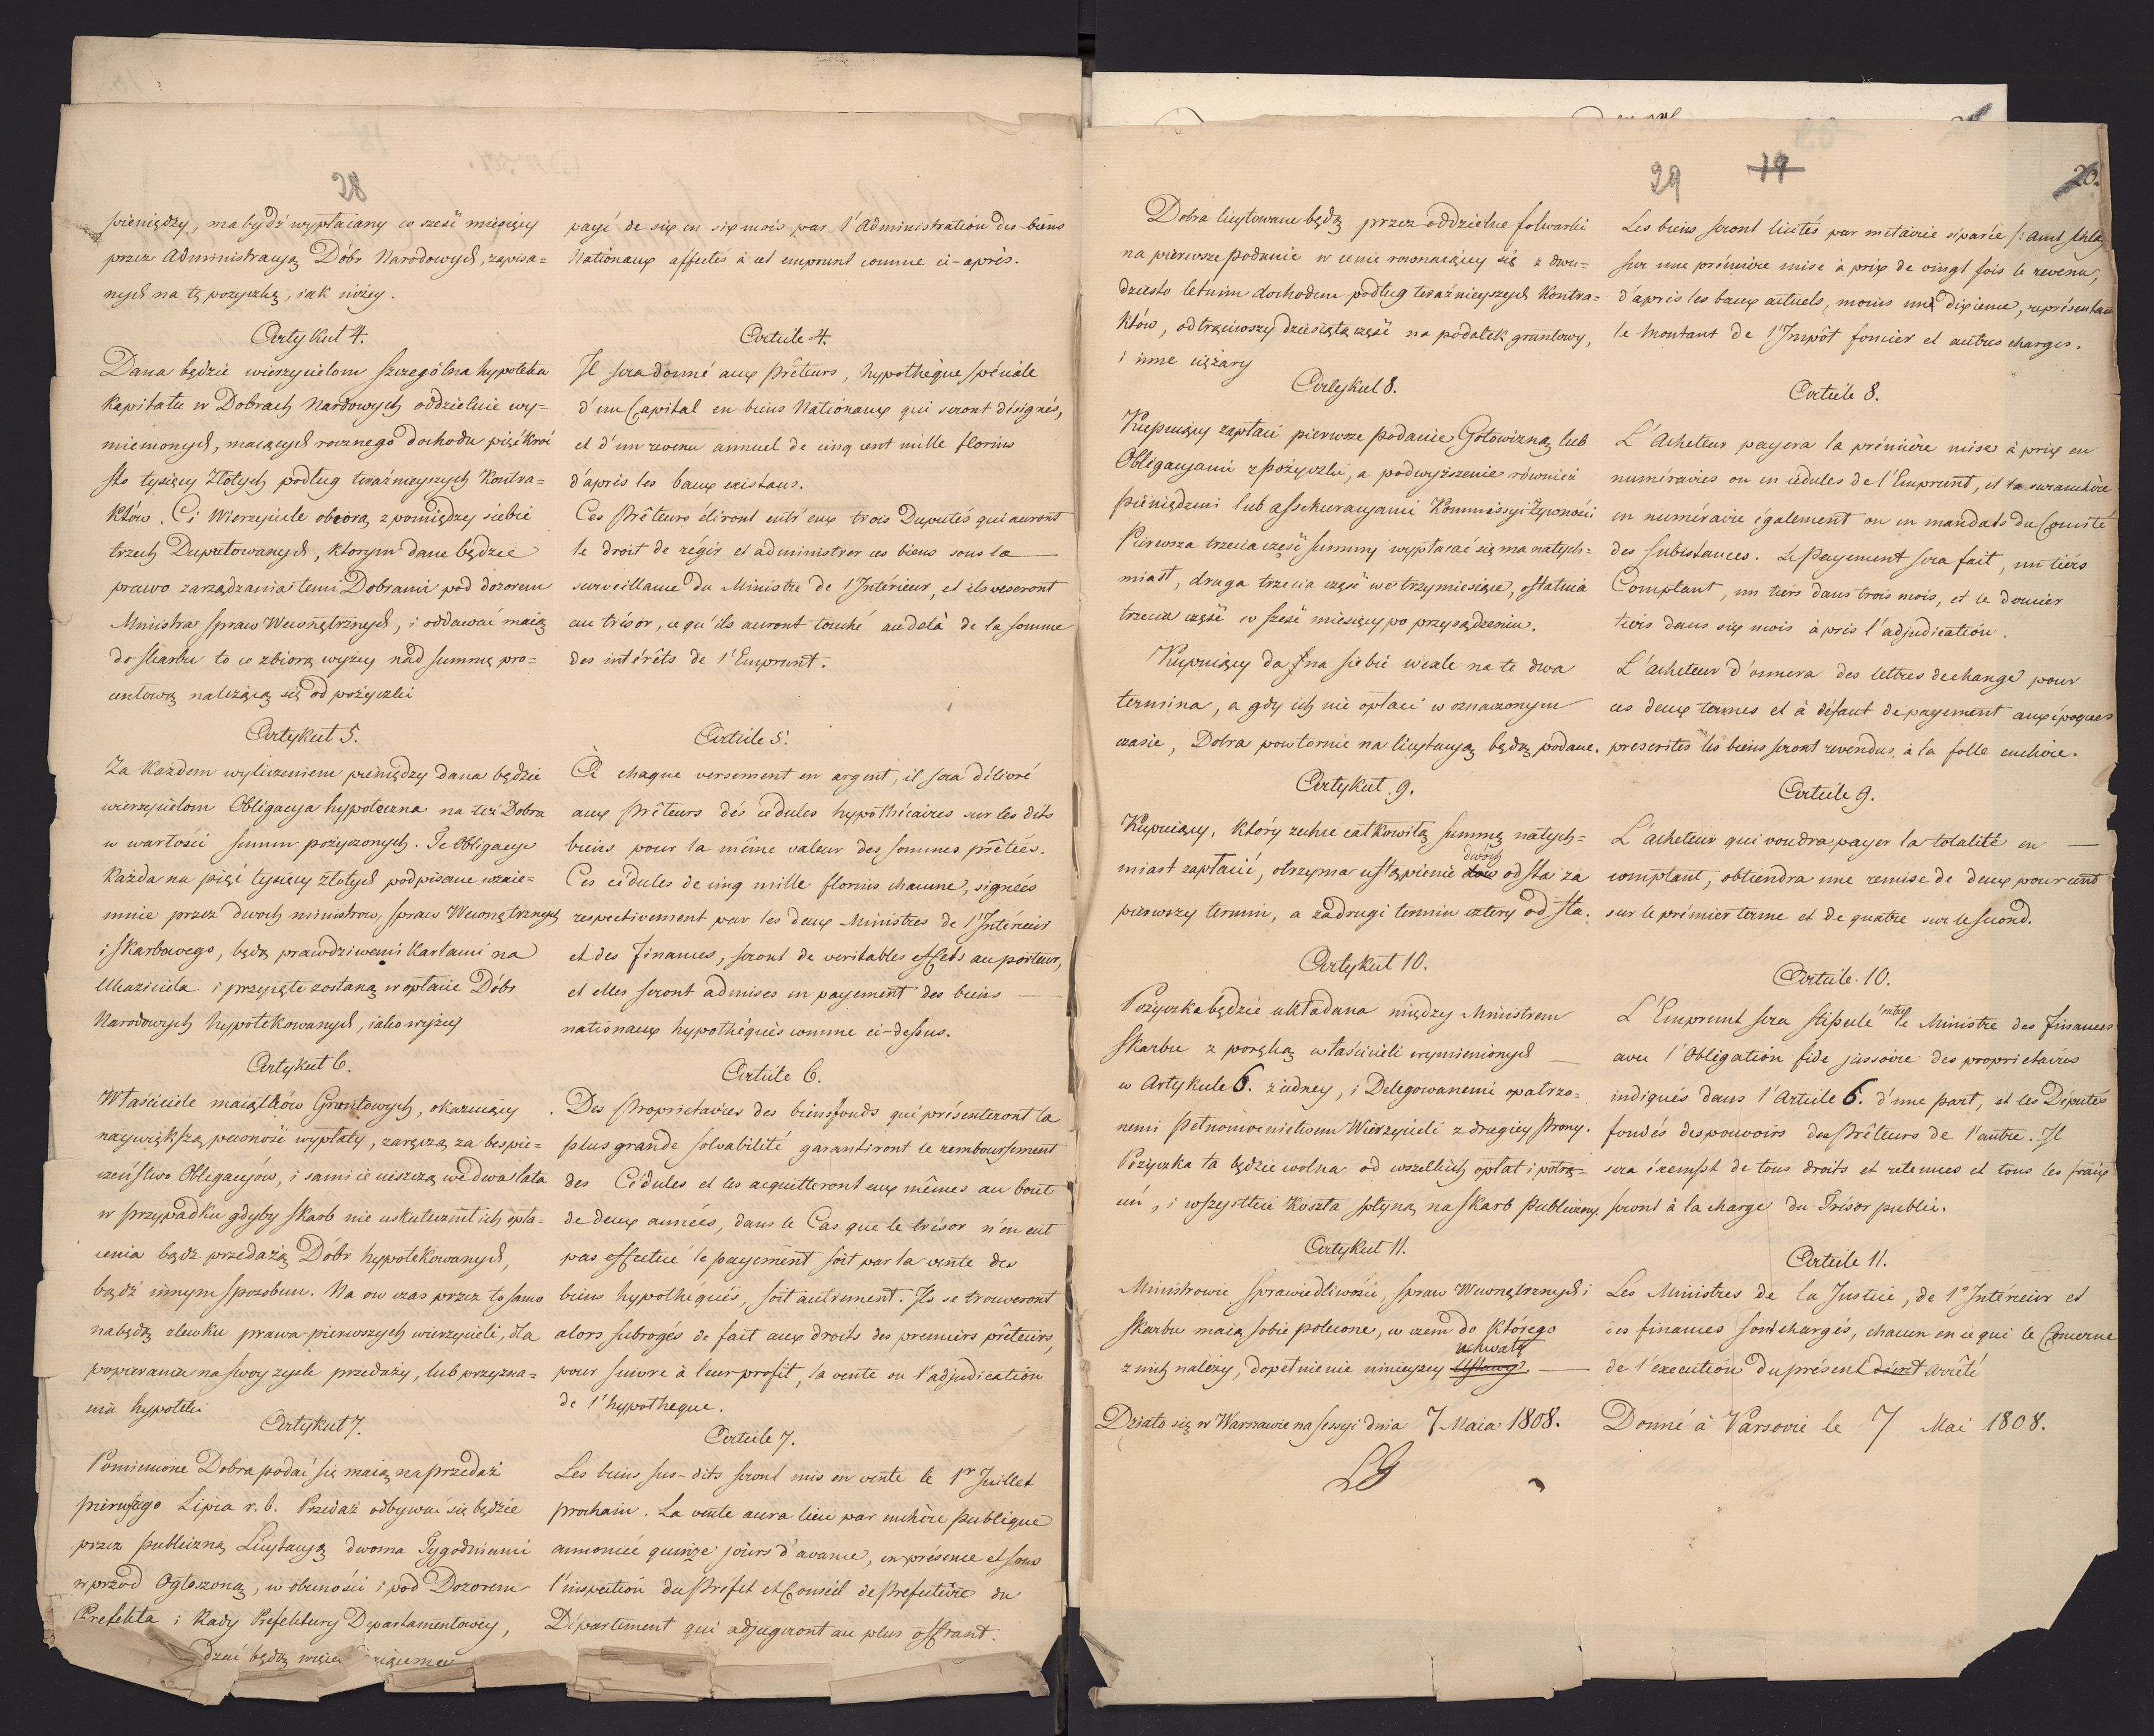 28
pieniędzy, ma bydź wypłacany co sześć miesięcy
przez Administracyą Dóbr Narodowych, zapisa=
nych na tę pożyczkę, iak niżey.
Artykuł 4.
Dana będzie wierzycielom szczególna hypoteka
Kapitału w Dobrach Nardowych oddzielnie wy=
mienionych, maiących rocznego dochodu pięćkroć
sto tysięcy Złotych podług teraźnieyszych Kontra=
któw. Ci Wierzyciele obiorą z pomiędzy siebie
trzech Deputowanych, ktorym dane będzie
prawo zarządzania temi Dobrami pod dozorem
Ministra Spraw Wewnętrznych, i oddawać maią
do skarbu to co zbiorą wyżey nad summę pro=
centową należącą się od pożyczki
Artykuł 5.
Za Każdem wyliczeniem pieniędzy dana będzie
wierzycielom Obligacya hypoteczna na też Dobra
w wartości summ pożyczonych. Te Obligacye
Każda na pięć tysięcy złotych podpisane wzaie=
mnie przez dwoch ministrow, Spraw Wewnętrznych
i Skarbowego, będą prawdziwemi Kartami na
Ukaziciela i przyięte zostaną w opłacie Dóbr
Narodowych hypotekowanych, iako wyżey
Artykuł 6.
Właściciele maiątków Gruntowych, okazuiący
naywiększą pewność wypłaty, zaręczą za bespie=
czeństwo Obligacyów, i sami ie uiszczą we dwa lata
w przypadku gdyby Skarb nie uskutecznił ich opła=
cenia bądź przedażą Dóbr hypotekowanych,
bądź innym sposobem. Na ow czas przez to samo
nabędą zlewku prawa pierwszych wierzycieli, dla
popierania na swoy zysk przedaży, lub przyzna=
nia hypoteki
Artykuł 7.
Pomienione Dobra podać się maią na przedaż
pierwszego Lipca r. b. Przedaż odbywać się będzie
przez publiczną Licytacyą dwoma Tygodniami
wprzod Ogłoszoną, w obecności i pod Dozorem
Prefekta i Rady Prefektury Departamentowey,
dzać będą więcey
payé de six en six mois par l'Administration des biens
Nationaux affectés à cet emprunt comme ci-après.
Article 4.
Il sera donné aux Prêteurs, hypothèque spéciale
d'un Capital en biens Nationaux qui seront désignés,
et d'un revenu annuel de cinq cent mille florins
d'après les baux existans.
Ces Prêteurs éliront entr'eux trois Deputés qui auront
le droit de régir et administrer ces biens sous la
surveillance du Ministre de l'Intérieur, et ils verseront
au trésor, ce qu'ils auront touché au delà de la somme
des intérêts de l'Emprunt.
Article 5.
À chaque versement en argent, il sera délivré
aux Prêteurs dés cédules hypothécaires sur les dits
biens pour la même valeur des sommes prêtées.
Ces cédules de cinq mille florins chacune, signées
respectivement par les deux Ministres de l'Intérieur
et des Finances, seront de veritables effets au porteur,
et elles seront admises en payement des biens
nationaux hypothéqués comme ci-dessus.
Article 6.
Des Proprietaires des biensfonds qui présenteront la
plus grande solvabilité garantiront le remboursement
des Cédules et les acquitteront eux mêmes au bout
de deux années, dans le Cas que le trésor n'en eut
pas effectué le payement soit par la vente des
biens hypothéqués, soit autrement. Ils se trouveront
alors subrogés de fait aux droits des premiers prêteurs,
pour suivre à leur profit, la vente ou l'adjudication
de l'hypotheque.
Article 7.
Les biens sus-dits seront mis en vente le 1r Juillet
prochain. La vente aura lieu par enchère publique
annoncée quinze jours d'avance, en présence et sous
l'inspection du Préfet et Conseil de Prefecture du
Département qui adjugeront au plus offrant.
29 19 20.
Dobra licytowane będą przez oddzielne folwarki
na pierwsze podanie w cenie rownaiącey się z dwu=
dziesto letnim dochodem podług teraźnieyszych Kontra=
któw, odtrąciwszy dziesiątą część na podatek gruntowy,
i inne ciężary
Artykuł 8.
Kupuiący zapłaci pierwsze podanie Gotowizną lub
Obligacyami z pożyczki, a podwyższenie również
pieniędzmi lub assekuracyami Kommissyi Żywności
Pierwsza trzecia część summy wypłacać się ma natych=
miast, druga trzecia część we trzy miesiące, ostatnia
trzecia część w sześć miesięcy po przysądzeniu.
Kupuiący da na siebie wexle na te dwa
termina, a gdy ich nie opłaci w oznaczonym
czasie, Dobra powtornie na licytacyą będą podane.
Artykuł 9.
Kupuiący, który zechce całkowitą summę natych=
miast zapłacić, otrzyma ustąpienie dwóch od sta za
pierwszy termin, a za drugi termin cztery od sta.
Artykuł 10.
Pożyczka będzie układana między Ministrem
Skarbu z poręką właścicieli wymienionych
w Artykule 6. z iedney, i Delegowanemi opatrzo=
nemi Pełnomocnictwem Wierzycieli z drugiey strony.
Pożyczka ta będzie wolna od wszelkich opłat i potrą=
ceń, i wszystkie Koszta spłyną na Skarb Publiczny.
Artykuł 11.
Ministrowie Sprawiedliwości, Spraw Wewnętrznych i
Skarbu maią sobie polecone, w czem do Którego
z nich należy, dopełnienie ninieyszey Ustawy. uchwały
Działo się w Warszawie na Sessyi dnia 7 Maia 1808.
Les biens seront licités par métairie séparée
sur une prémière mise à prix de vingt fois le revenu,
d'après les baux actuels, moins un dixieme, représentant
le Montant de l'Impôt foncier et autres charges.
Article 8.
L'Acheteur payera la prémière mise à prix en
numéraires ou en cédules de l'Emprunt, et la surenchère
en numéraire également ou en mandats du Comité
des Subsistances. Le Payement sera fait, un tiérs
Comptant, un tiers dans trois mois, et le dernier
tiers dans six mois après l'adjudication.
L'acheteur d'onnera des lettres de change pour
ces deux termes et à défaut de payement aux époques
prescrites les biens seront revendus à la folle enchère.
Article 9.
L'acheteur qui voudra payer la totalité en
comptant, obtiendra une remise de deux pour cent
sur le prémier terme et de quatre sur le second.
Article 10.
L'Emprunt sera stipulé entre le Ministre des finances
avec l'Obligation fide jussoire des proprietaires
indiqués dans l'Article 6. d'une part, et les Députés
fondés des pouvoirs des Prêteurs de l'autre. Il
sera éxempt de tous droits et retenues et tous les fraix
seront à la charge du Trésor public.
Article 11.
Les Ministres de la Justice, de l'Interieur et
des finances sont chargés, chacun en ce qui le Concerne
de l'execution du présent décret arrêté
Donné à Varsovie le 7 Mai 1808.